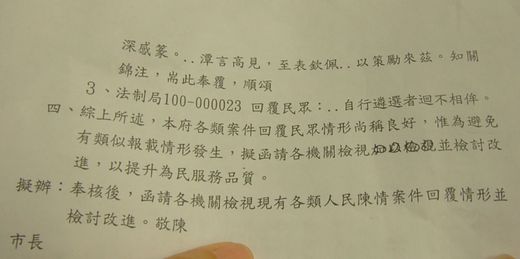 深感篆。..潭言高見，至表欽佩..以策勵來茲。知關
錦注，耑此奉覆，順頌
3、法制局100-000023 回覆民眾：..自行遴選者迥不相侔。
四、綜上所述，本府各類案件回覆民眾情形尚稱良好，惟為避免
有類似報載情形發生，擬函請各機關檢視並檢討改
進，以提升為民服務品質。
擬辦：奉核後，函請各機關檢視現有各類人民陳情案件回覆情形並
檢討改進。敬陳
市長